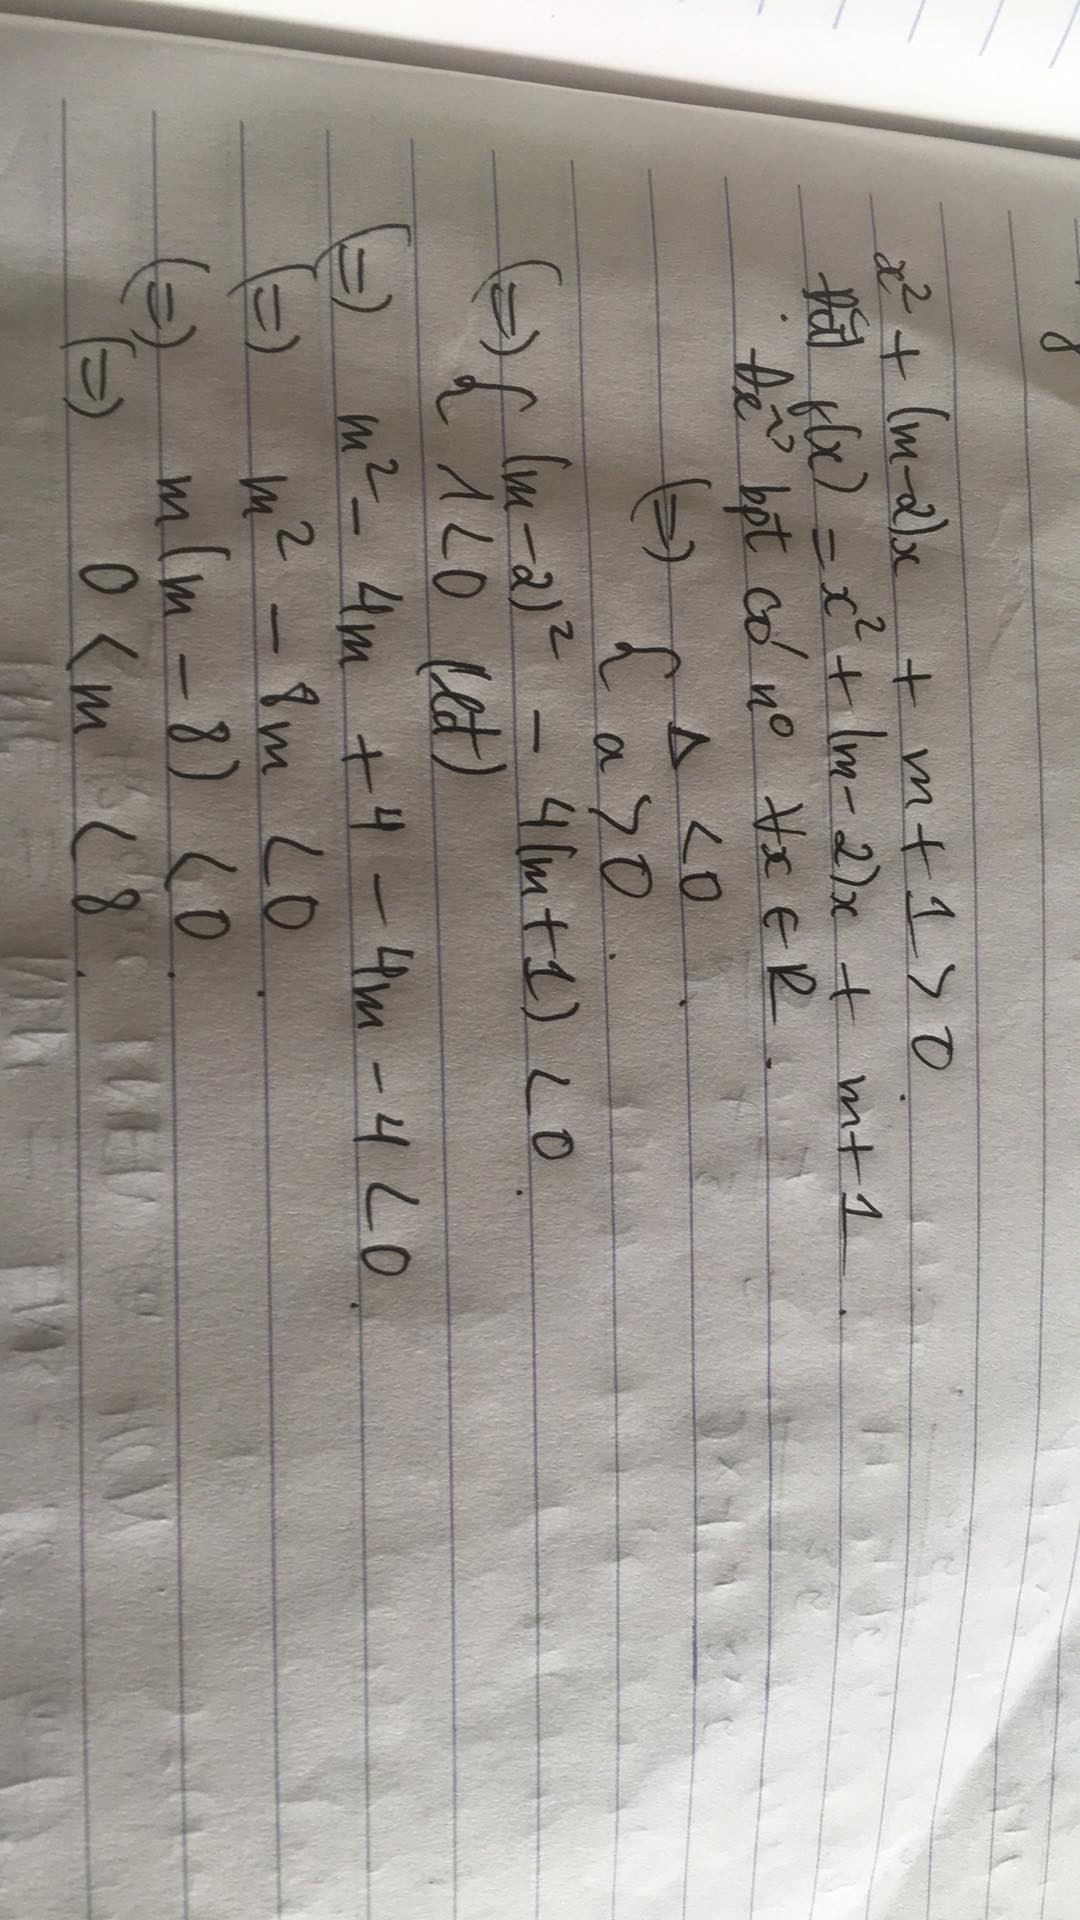 x² + (m-2)x + m+1 > 0.
Đặt f(x) = x² + (m-2)x + m+1.
Để bpt có n° ∀x ∈ R.
(=) { Δ < 0.
a > 0.
(=) { (m-2)² - 4(m+1) < 0.
{ 1 < 0 (lđ)
(=) m² - 4m + 4 - 4m - 4 < 0.
(=) m² - 8m < 0.
(=) m(m - 8) < 0.
(=) 0 < m < 8.